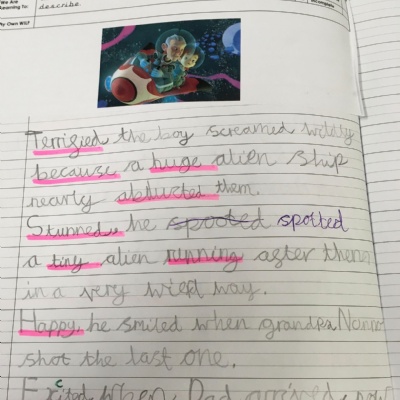 We Are
Learning To:
describe.
My Own WILF
Terrified the boy screamed wildly
because a huge alien ship
nearly abducted them.
Stunned, he spooted spotted
a tiny alien running after them
in a very wierd way.
Happy, he smiled when grandpa
shot the last one.
Excited when Dad arrived